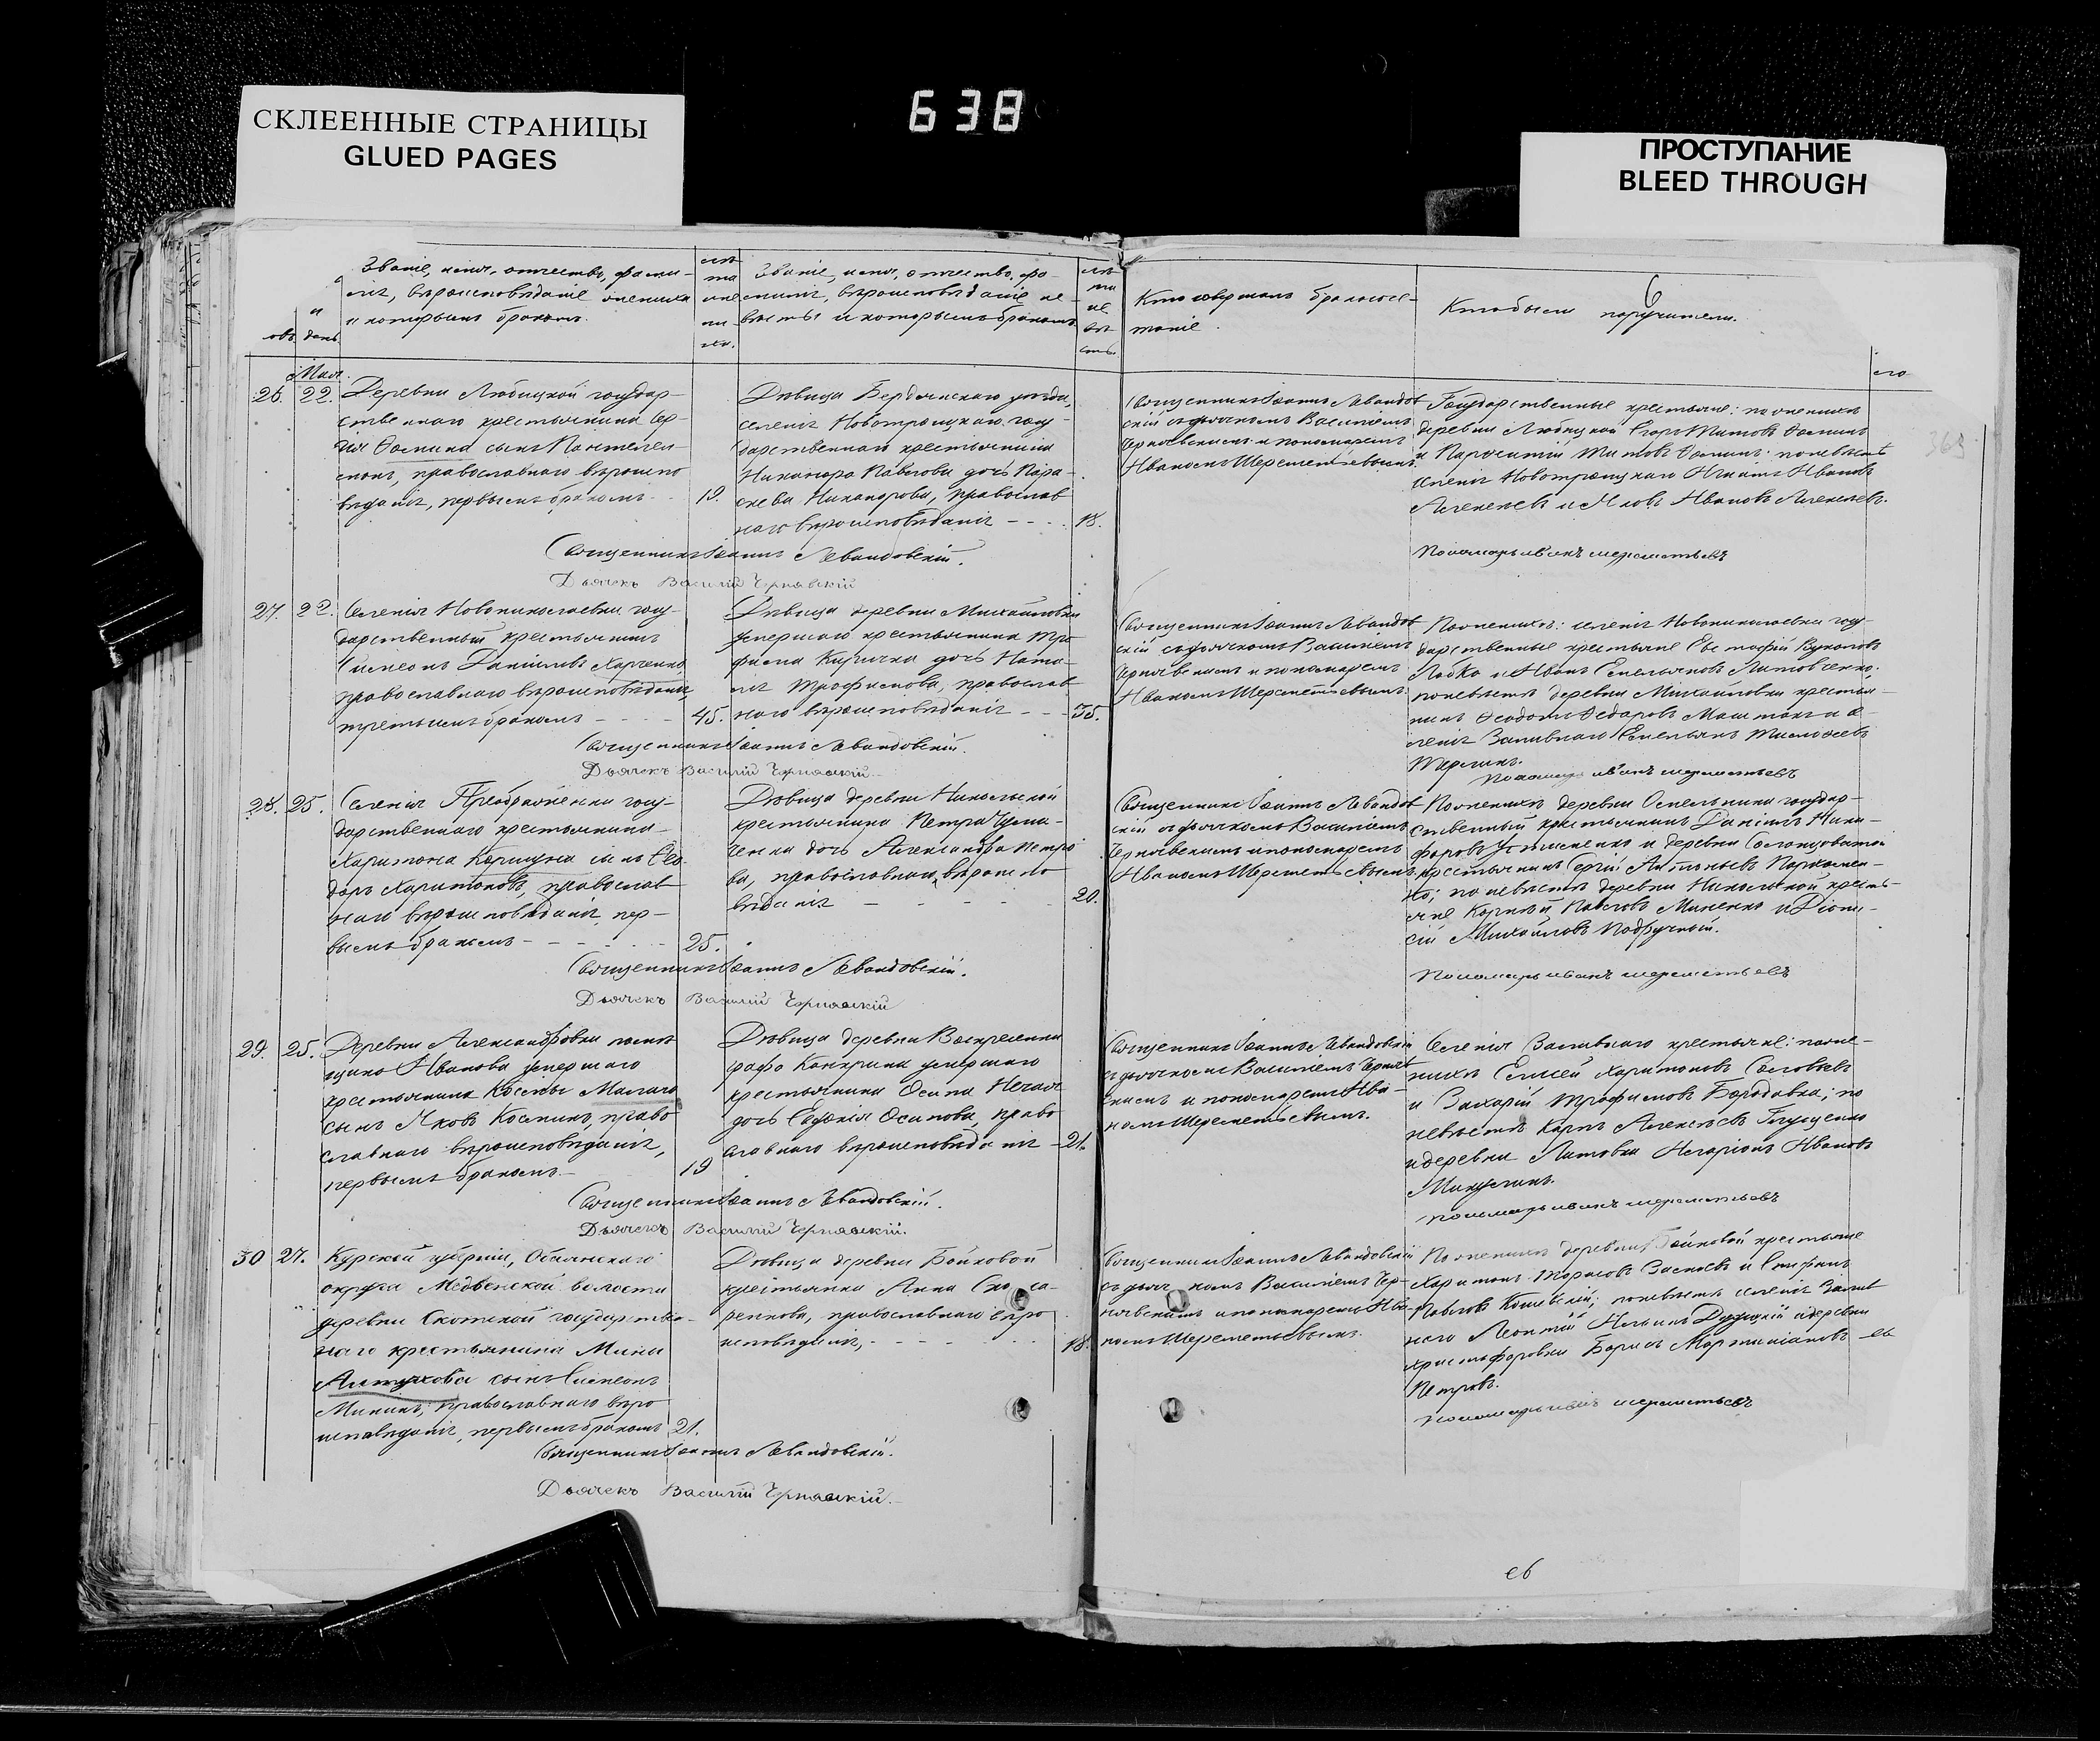 СКЛЕЕННЫЕ СТРАНИЦЫ
GLUED PAGES
638
ПРОСТУПАНИЕ
BLEED THROUGH
Званіе, имя, отчество, фами-
лія, вѣроисповѣданіе жениха
и которымъ бракомъ.
лѣ
та
же
ни-
ха.
Званіе, имя, отчество, фа-
милія, вѣроисповѣданіе не-
вѣсты и которымъ бракомъ
лѣ
та
не
вѣ
сты.
Кто совершалъ бракосоче-
таніе.
Кто были поручители.
6
и
день
его
Мая.
26. 22.
Деревни Любицкой государ-
ственнаго крестьянина
Фомина сынъ Пантелей-
православнаго вѣроиспо
вѣданія, первымъ бракомъ 19.
Дѣвица Бердянскаго уѣзда,
селенія Новотроицкаго госу-
дарственнаго крестьянина
Никанора Павлова дочь Пара-
скева Никанорова, православ
наго вѣроисповѣданія - - - 18.
Священникъ Іоаннъ Левандов
скій съ дьячкомъ Василіемъ
Чернявскимъ и пономаремъ
Иваномъ Шереметьевымъ.
Государственные крестьяне: по женихѣ
деревни Любицкой Егоръ Титовъ Фоминъ
и Титовъ Фоминъ; по невѣстѣ
селенія Новотроицкаго Иванов
Алексѣевъ и Яковъ Ивановъ Алексѣевъ.
Священникъ Іоаннъ Левандовскій.
Дьячекъ Василій Чернявскій
Пономарь иванъ шереметьевъ
27. 22.
Селенія Новониколаевки госу-
дарственный крестьянинъ
Симеонъ Даніиловъ Харченко,
православнаго вѣроисповѣданія,
третьимъ бракомъ - - - 45.
Дѣвица деревни Михайловки
умершаго крестьянина Тро
фима Киричка дочь Ната-
лія Трофимова, православ
наго вѣроисповѣданія - - - 35.
Священникъ Іоаннъ Левандов
скій съ дьячкомъ Василіемъ
Чернявскимъ и пономаремъ
Иваномъ Шереметьевымъ.
По женихѣ: селенія Новониколаевки госу-
дарственные крестьяне
и Иванъ Емельяновъ Литовченко;
по невѣстѣ деревни Михайловки крестья-
нинъ Феодотъ Федоровъ и се-
ленія Заливнаго Емельянъ Тимофеевъ
Священникъ Іоаннъ Левандовскій.
Дьячекъ Василій Чернявскій.
Пономарь иванъ шереметьевъ
28. 25.
Селенія Преображенки госу-
дарственнаго крестьянина
Харитона Коршуна сынъ Ѳео-
доръ Харитоновъ, православ
наго вѣроисповѣданія, пер-
вымъ бракомъ - - - - - 25.
Дѣвица деревни Никольской
крестьянина Петра Чума-
ченка дочь Александра Петро
ва, православнаго вѣроиспо
вѣданія - - - - - 20.
Священникъ Іоаннъ Левандов
скій съ дьячкомъ Василіемъ
Чернявскимъ и пономаремъ
Иваномъ Шереметьевымъ.
По женихѣ деревни государ-
ственный крестьянинъ Даніилъ Ники-
форовъ Устименко и деревни
крестьянинъ Сергій Пархомен-
ко; по невѣстѣ деревни Никольской кресть-
яне Корній Павловъ Миненко и Діони-
сій Михайловъ Подручный.
Священникъ Іоаннъ Левандовскій.
Дьячекъ Василій Чернявскій
Пономарь иванъ шереметьевъ
29. 25.
Деревни Александровки помѣ
щика Иванова умершаго
крестьянина Космы
сынъ Яковъ Косминъ, право
славнаго вѣроисповѣданія,
первымъ бракомъ - 19
Дѣвица деревни Воскресенки
графа Канкрина умершаго
крестьянина Осипа Нечая
дочь Евдокія Осипова, право
славнаго вѣроисповѣданія - 21.
Священникъ Іоаннъ Левандовскій
съ дьячкомъ Василіемъ Черняв
скимъ и пономаремъ Ива-
номъ Шереметьевымъ.
Селенія Заливнаго крестьяне: по же-
нихѣ Елисей Харитоновъ Соловьевъ
и Захарій Трофимовъ Бородавка; по
невѣстѣ Карпъ Алексѣевъ Глущенко
и деревни Литовки Иларіонъ Ивановъ
Священникъ Іоаннъ Левандовскій.
Дьячекъ Василій Чернявскій.
Пономарь иванъ шереметьевъ
30 27.
Курской губерніи, Обоянскаго
округа Медвенской волости
деревни государствен-
наго крестьянина Мины
Алтухова сынъ Симеонъ
Мининъ, православнаго вѣро
исповѣданія, первымъ бракомъ 21.
Дѣвица деревни Бойковой
крестьянка Анна
православнаго вѣро
исповѣданія, - - - - - 18.
Священникъ Іоаннъ Левандовскій
съ дьячкомъ Василіемъ Чер-
нявскимъ и пономаремъ Ива-
номъ Шереметьевымъ.
По женихѣ деревни Бойковой крестьяне
Харитонъ Тарасовъ и Стефанъ
Павловъ по невѣстѣ селенія Залив
наго Леонтій Ильинъ и деревни
Христофоровки Борисъ Мартиніановъ
Петровъ.
Священникъ Іоаннъ Левандовскій.
Дьячекъ Василій Чернявскій.
Пономарь иванъ шереметьевъ